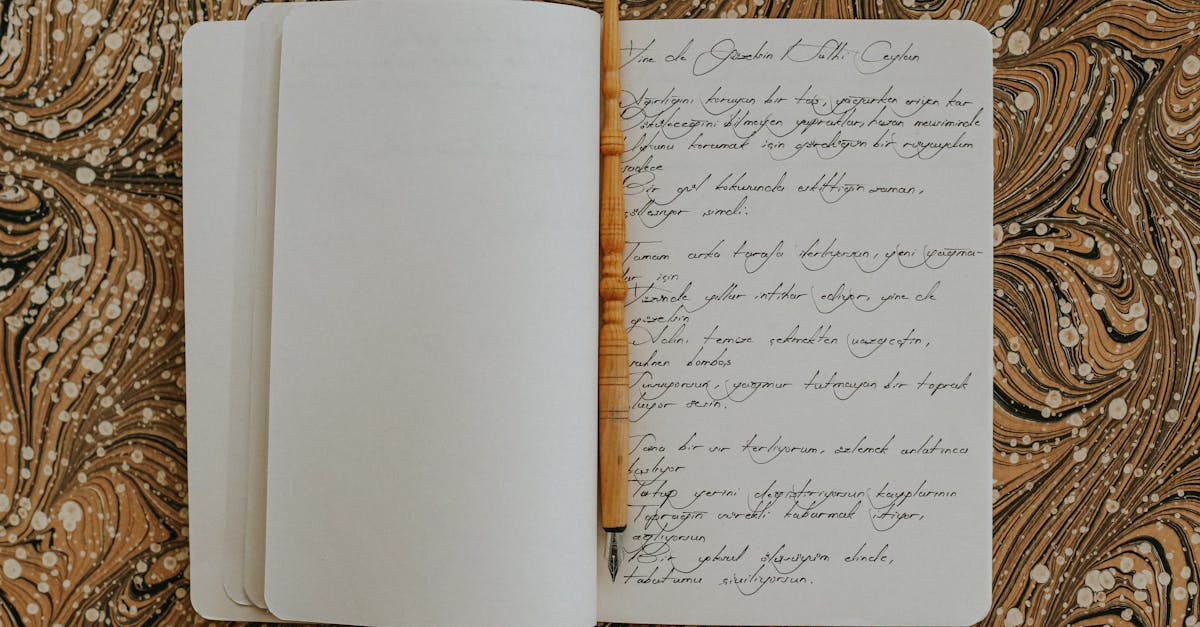 Yine de Güzelsin Nulhi Ceylan
Ağırlığını koruyan bir taş, yağarken eriyen kar
Döküleceğini bilmeyen yapraklar, hazan mevsiminde
Uykunu korumak için gördüğün bir rüyaydım
sadece
Bir gül kokusunda eskittiğin zaman,
çölleşiyor şimdi.
Tamam arka tarafa ilerliyorsun, yeni yağmu-
lar için
Yüzünde yıllar intihar ediyor, yine de
güzelsin
temize çekmekten vazgeçtin,
sahnen bomboş
yağmur tutmayan bir toprak
oluyor sesin.
Sana bir sır terliyorum, özlemek anlatınca
başlıyor
Tutup yerini değiştiriyorsun kayıplarının
Toprağın sürekli kabarmak istiyor,
ağlıyorsun
Bir yoksul ölüsüyüm elinde,
tabutumu çiviliyorsun.